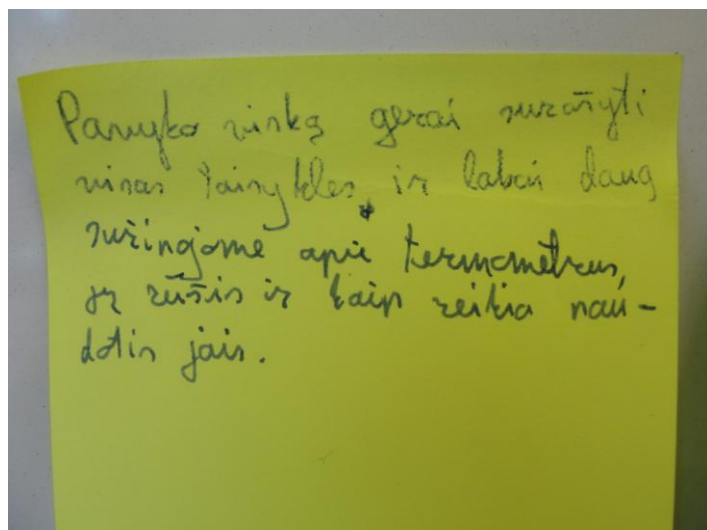 Pavyko viską gerai surašyti
visas taisykles, ir labai daug
sužinojome apie termometrus,
jų rūšis ir kaip reikia nau-
dotis jais.